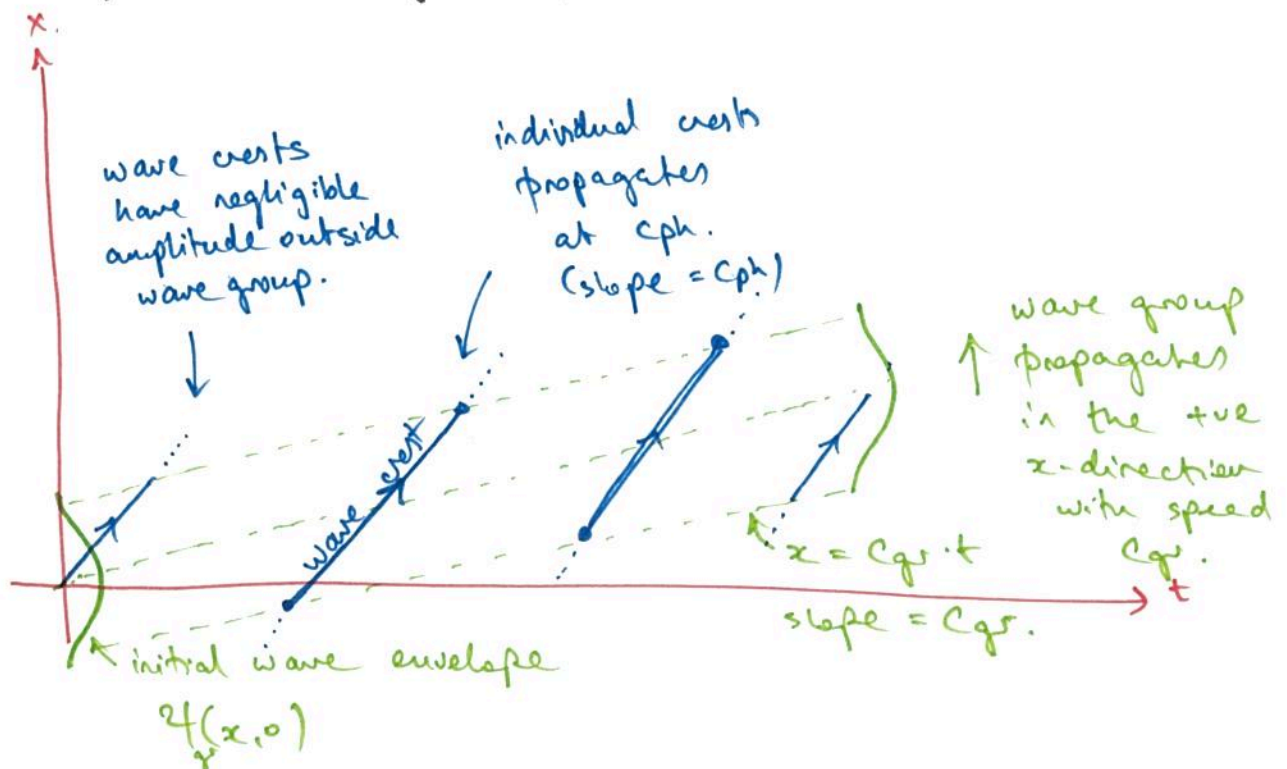 x.
wave crests
have negligible
amplitude outside
wave group.
individual crests
propagates
at cph.
(slope = Cph)
wave crest
wave group
propagates
in the +ve
x-direction
with speed
Cgr.
x = Cgr.t
t
slope = Cgr.
initial wave envelope
Ψgr(x,0)